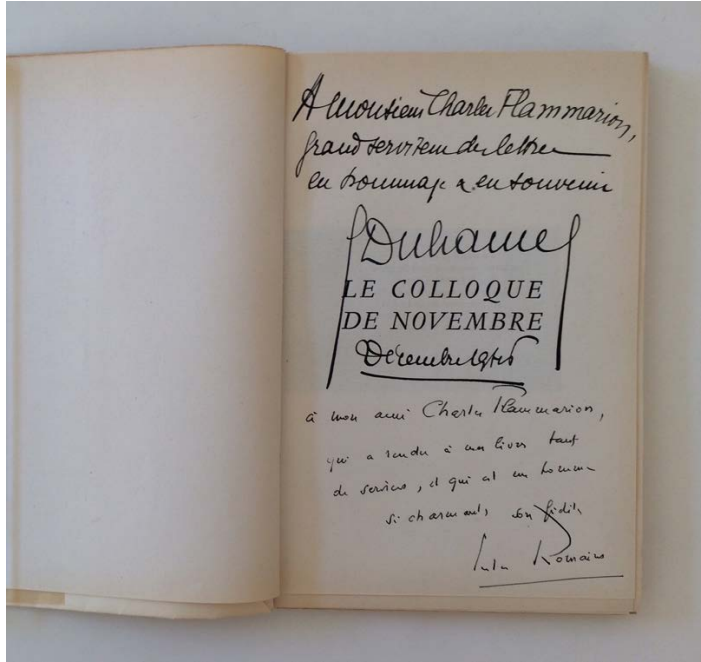 A Monsieur Charles Flammarion,
grand serviteur des lettres
en hommage & en souvenir
GDuhamel
LE COLLOQUE
DE NOVEMBRE
Décembre 1946
à mon ami Charles Flammarion,
qui a rendu à mes livres tant
de services, et qui est un homme
si charmant, son fidèle
Jules Romains